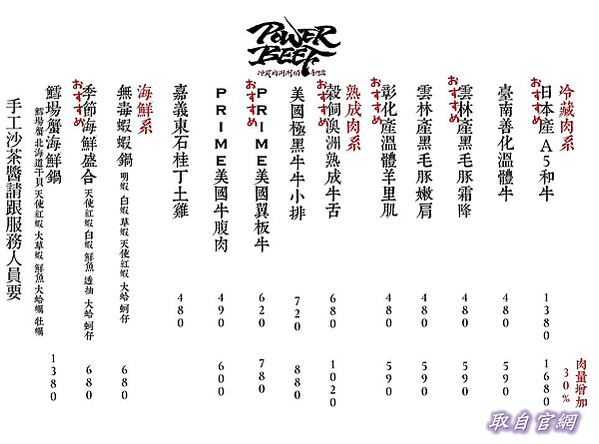 POWER BEEF
冷藏肉系
肉量增加30%
おすすめ
日本產A5和牛 1380 1680
臺南善化溫體牛 480 590
おすすめ
雲林產黑毛豚霜降 480 590
雲林產黑毛豚嫩肩 480 590
おすすめ
彰化產溫體羊里肌 480 590
熟成肉系
おすすめ
穀飼澳洲熟成牛舌 680 1020
美國極黑牛牛小排 720 880
おすすめ
PRIME美國翼板牛 620 780
PRIME美國牛腹肉 490 600
嘉義東石桂丁土雞 480
海鮮系
無毒蝦蝦鍋 明蝦 白蝦 草蝦 天使紅蝦 大蛤 蚵仔 680
おすすめ
季節海鮮盛合 天使紅蝦 白蝦 鮮魚 透抽 大蛤 蚵仔 680
鱈場蟹海鮮鍋 鱈場蟹 北海道干貝 天使紅蝦 大草蝦 鮮魚 大蛤蠣 牡蠣 1380
手工沙茶醬請跟服務人員要
取自官網